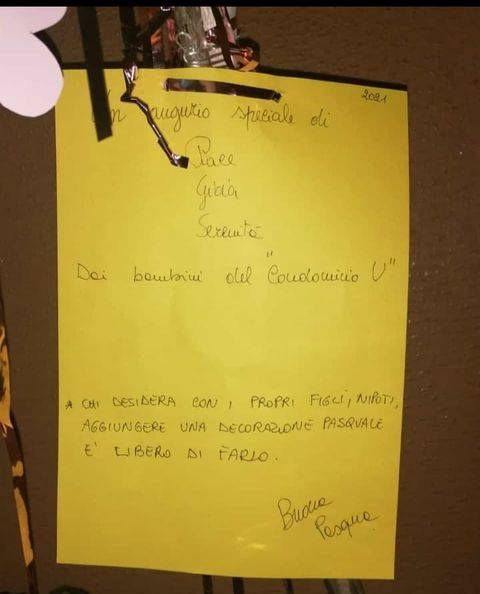 2021
Un augurio speciale di
Pace
Gioia
Serenità
Dai bambini del "Condominio U"
* CHI DESIDERA CON I PROPRI FIGLI, NIPOTI,
AGGIUNGERE UNA DECORAZIONE PASQUALE
E' LIBERO DI FARLO.
Buona
Pasqua